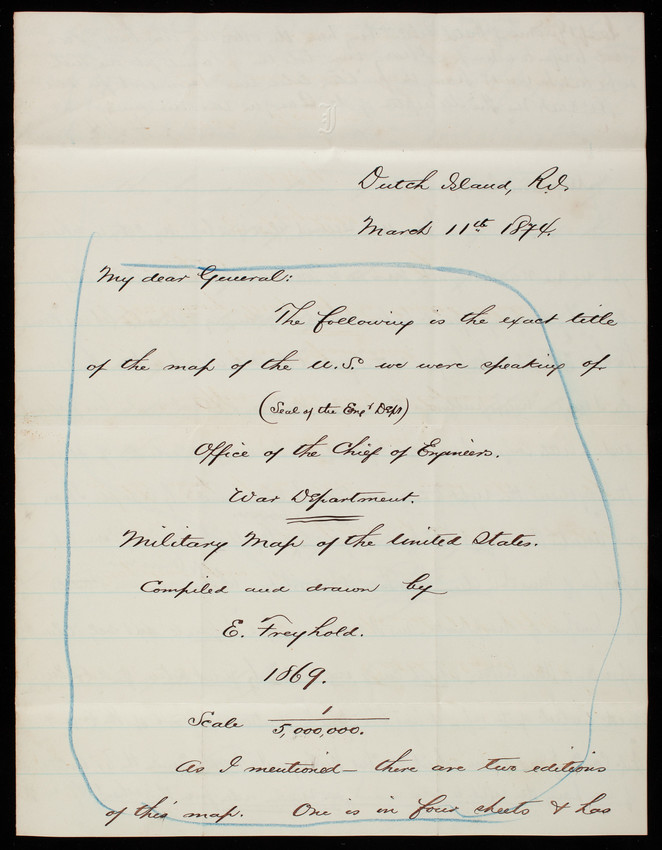 Dutch Island, R.I.
March 11th 1874.
My dear General:
The following is the exact title
of the map of the U.S. we were speaking of.
(Seal of the Engr Dept)
Office of the Chief of Engineers.
War Department.
Military Map of the United States.
Compiled and drawn by
E. Freyhold.
1869.
Scale 1/5,000,000.
As I mentioned – there are two editions
of this map. One is in four sheets & has